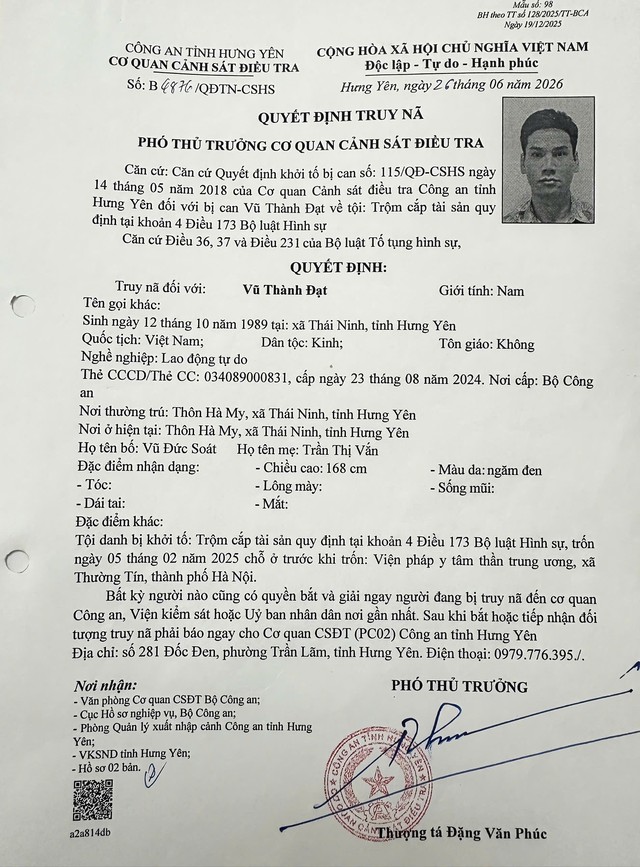 Mẫu số: 98
BH theo TT số 128/2025/TT-BCA
Ngày 19/12/2025
CÔNG AN TỈNH HƯNG YÊN
CƠ QUAN CẢNH SÁT ĐIỀU TRA
Số: B 6876/QĐTN-CSHS
CỘNG HÒA XÃ HỘI CHỦ NGHĨA VIỆT NAM
Độc lập - Tự do - Hạnh phúc
Hưng Yên, ngày 26 tháng 06 năm 2026
QUYẾT ĐỊNH TRUY NÃ
PHÓ THỦ TRƯỞNG CƠ QUAN CẢNH SÁT ĐIỀU TRA
Căn cứ: Căn cứ Quyết định khởi tố bị can số: 115/QĐ-CSHS ngày
14 tháng 05 năm 2018 của Cơ quan Cảnh sát điều tra Công an tỉnh
Hưng Yên đối với bị can Vũ Thành Đạt về tội: Trộm cắp tài sản quy
định tại khoản 4 Điều 173 Bộ luật Hình sự
Căn cứ Điều 36, 37 và Điều 231 của Bộ luật Tố tụng hình sự,
QUYẾT ĐỊNH:
Truy nã đối với: Vũ Thành Đạt Giới tính: Nam
Tên gọi khác:
Sinh ngày 12 tháng 10 năm 1989 tại: xã Thái Ninh, tỉnh Hưng Yên
Quốc tịch: Việt Nam; Dân tộc: Kinh; Tôn giáo: Không
Nghề nghiệp: Lao động tự do
Thẻ CCCD/Thẻ CC: 034089000831, cấp ngày 23 tháng 08 năm 2024. Nơi cấp: Bộ Công
an
Nơi thường trú: Thôn Hà My, xã Thái Ninh, tỉnh Hưng Yên
Nơi ở hiện tại: Thôn Hà My, xã Thái Ninh, tỉnh Hưng Yên
Họ tên bố: Vũ Đức Soát Họ tên mẹ: Trần Thị Vắn
Đặc điểm nhận dạng: - Chiều cao: 168 cm - Màu da: ngăm đen
- Tóc: - Lông mày: - Sống mũi:
- Dái tai: - Mắt:
Đặc điểm khác:
Tội danh bị khởi tố: Trộm cắp tài sản quy định tại khoản 4 Điều 173 Bộ luật Hình sự, trốn
ngày 05 tháng 02 năm 2025 chỗ ở trước khi trốn: Viện pháp y tâm thần trung ương, xã
Thường Tín, thành phố Hà Nội.
Bất kỳ người nào cũng có quyền bắt và giải ngay người đang bị truy nã đến cơ quan
Công an, Viện kiểm sát hoặc Uỷ ban nhân dân nơi gần nhất. Sau khi bắt hoặc tiếp nhận đối
tượng truy nã phải báo ngay cho Cơ quan CSĐT (PC02) Công an tỉnh Hưng Yên
Địa chỉ: số 281 Đốc Đen, phường Trần Lãm, tỉnh Hưng Yên. Điện thoại: 0979.776.395./.
Nơi nhận:
- Văn phòng Cơ quan CSĐT Bộ Công an;
- Cục Hồ sơ nghiệp vụ, Bộ Công an;
- Phòng Quản lý xuất nhập cảnh Công an tỉnh Hưng
Yên;
- VKSND tỉnh Hưng Yên;
- Hồ sơ 02 bản.
a2a814db
PHÓ THỦ TRƯỞNG
CÔNG AN TỈNH HƯNG YÊN
CƠ QUAN CẢNH SÁT ĐIỀU TRA
Thượng tá Đặng Văn Phúc